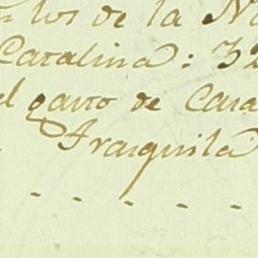 los de la
Catalina: 32
el gasto de Cara
Franquila
- - - - -